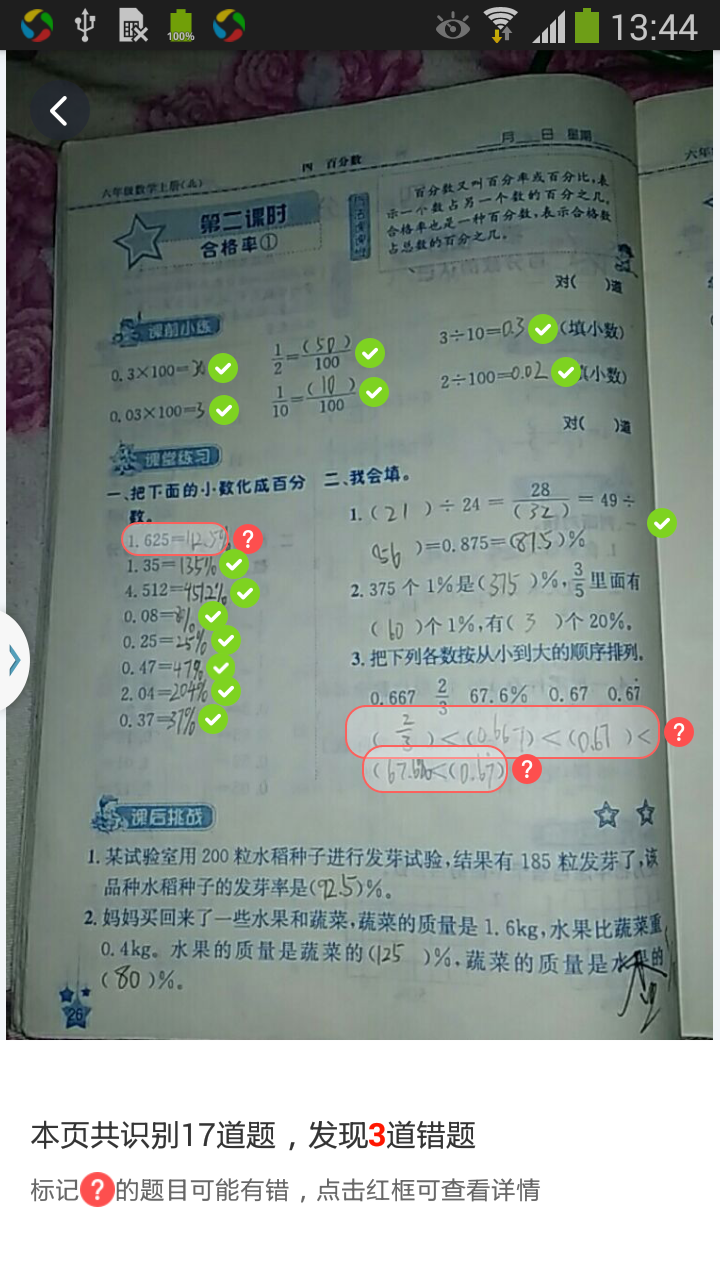 100%
13:44
月 日 星期
六年级数学上册(北)
四 百分数
六年
第二课时
合格率①
百分数又叫百分率或百分比,表
示一个数占另一个数的百分之几。
合格率也是一种百分数,表示合格数
占总数的百分之几。
对( )道
课前小练
0.3×100=30
1/2=(50)/100
3÷10=0.3(填小数)
0.03×100=3
1/10=(10)/100
2÷100=0.02 填小数)
对( )道
课堂练习
一、把下面的小数化成百分
数。
1.625=112.5%
1.35=135%
4.512=451.2%
0.08=8%
0.25=25%
0.47=47%
2.04=204%
0.37=37%
二、我会填。
1.(21)÷24=28/(32)=49÷
(56)=0.875=(87.5)%
2.375个1%是(375)%,3/5里面有
(60)个1%,有(3)个20%。
3.把下列各数按从小到大的顺序排列。
0.667 2/3 67.6% 0.67 0.67̇
(2/3)<(0.667)<(0.67)<
(67.6%<(0.67̇)
课后挑战
1.某试验室用200粒水稻种子进行发芽试验,结果有185粒发芽了,该
品种水稻种子的发芽率是(92.5)%。
2.妈妈买回来了一些水果和蔬菜,蔬菜的质量是1.6kg,水果比蔬菜重
0.4kg。水果的质量是蔬菜的(125)%,蔬菜的质量是水果的
(80)%。
26
本页共识别17道题,发现3道错题
标记?的题目可能有错,点击红框可查看详情